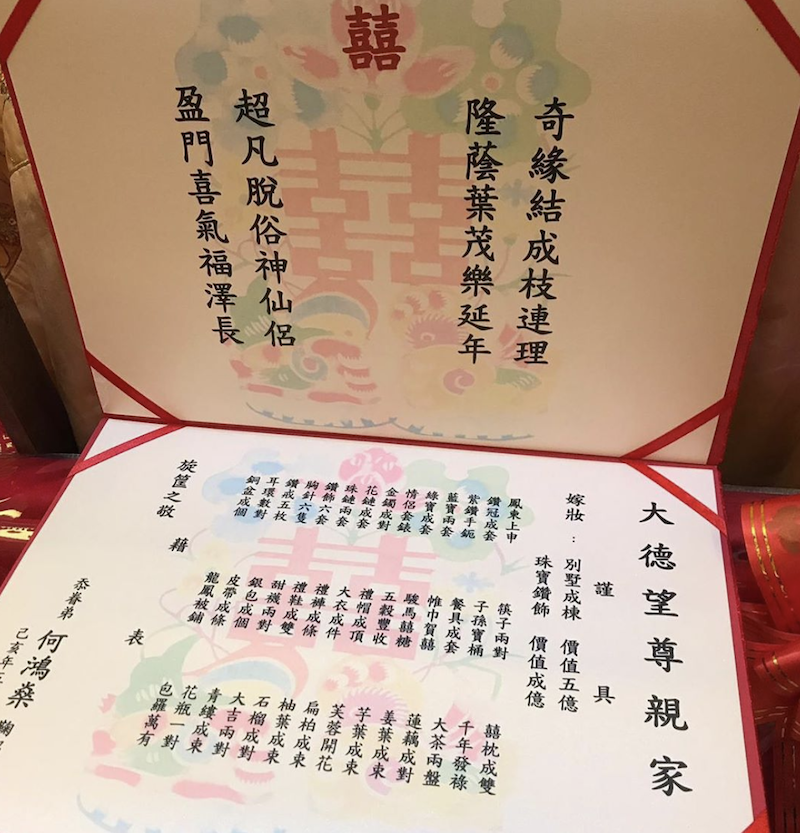 囍
奇緣結成枝連理
隆蔭葉茂樂延年
超凡脫俗神仙侶
盈門喜氣福澤長
大德望尊親家
謹 具
嫁妝:別墅成棟 價值五億
珠寶鑽飾 價值成億
鳳東上申
鑽冠成套
紫鑽手鈪
藍寶兩套
綠寶成套
情侶套錶
金鐲成對
花鏈成套
珠鏈兩套
鑽飾六套
胸針六隻
鑽戒五枚
耳環數對
銅盆成個
筷子兩對
子孫寶桶
餐具成套
帷巾賀囍
駿馬囍糖
五穀豐收
禮帽成頂
大衣成件
禮褲成條
禮鞋成雙
甜襪兩對
銀包成個
皮帶成條
龍鳳被鋪
囍枕成雙
千年發祿
大茶兩盤
蓮藕成對
姜葉成束
芋葉成束
芙蓉開花
扁柏成束
柚葉成束
石榴成對
大吉兩對
青縷成束
花瓶一對
包羅萬有
藉 表
旋筐之敬
忝眷弟 何鴻燊 鞠
己亥年